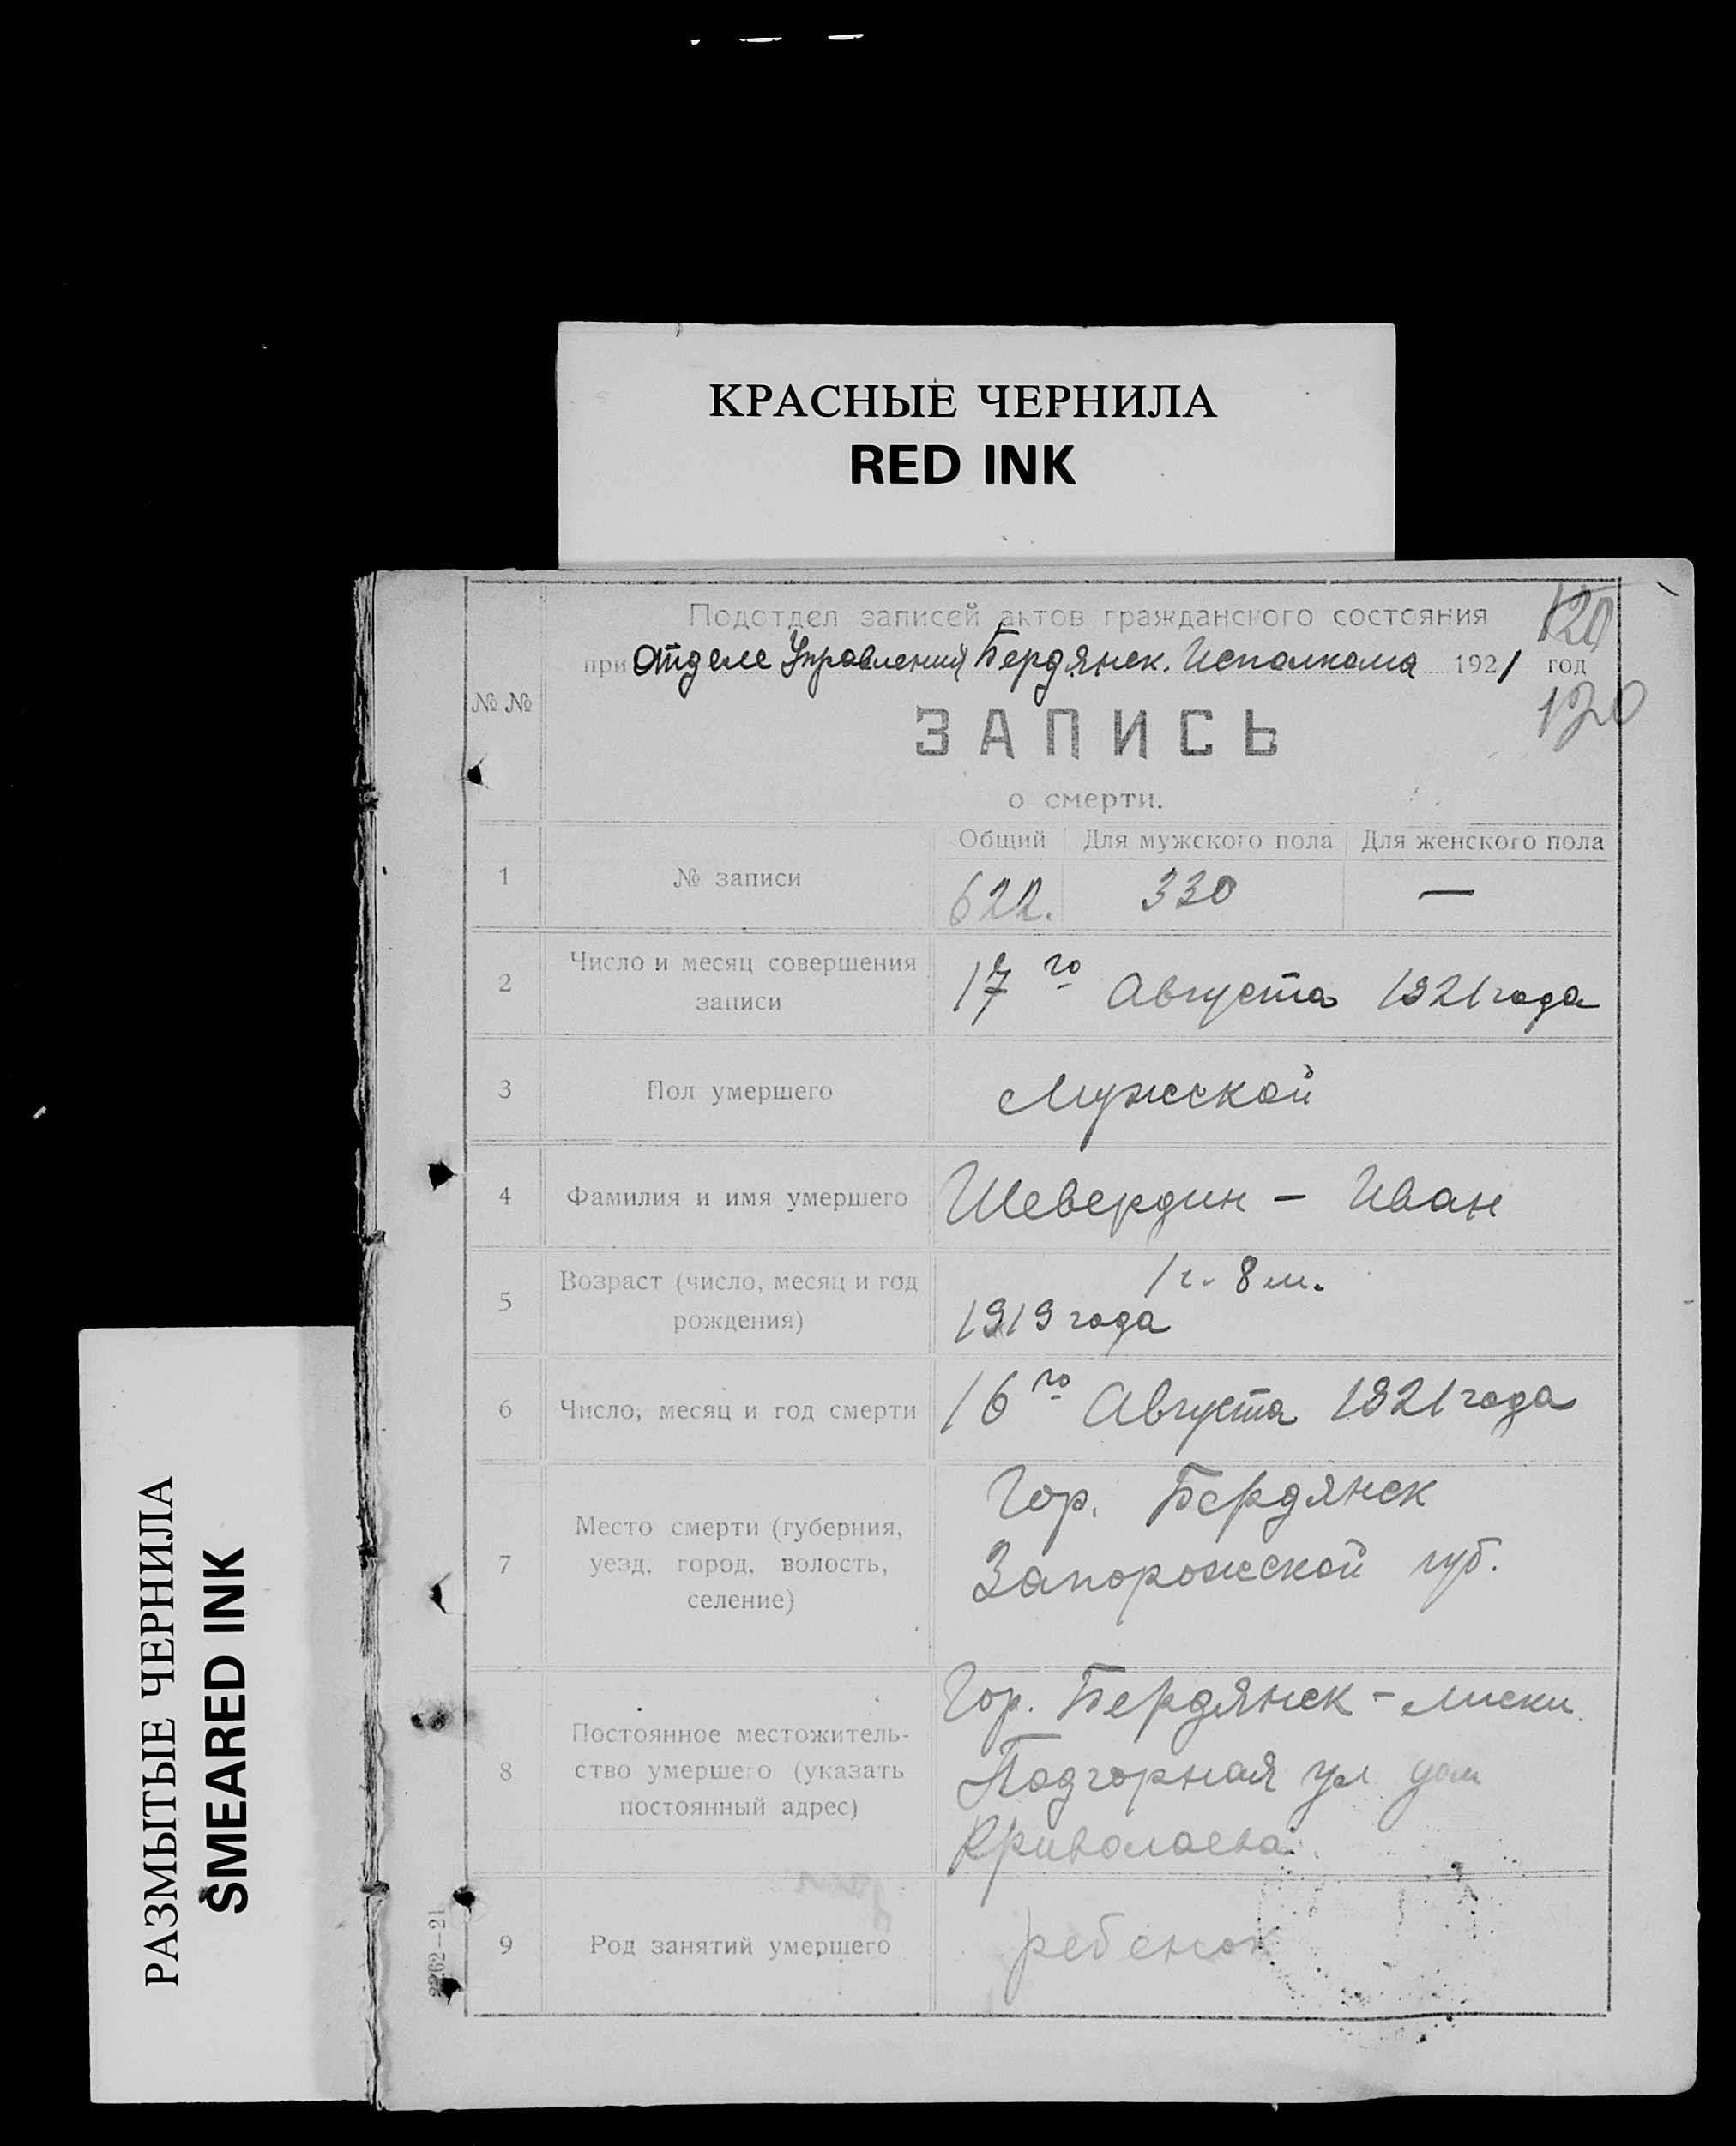 КРАСНЫЕ ЧЕРНИЛА
RED INK
РАЗМЫТЫЕ ЧЕРНИЛА
SMEARED INK
Подотдел записей актов гражданского состояния
120
при Отделе Управления Бердянск. Исполкома 1921 год
120
№ №
ЗАПИСЬ
о смерти.
Общий Для мужского пола Для женского пола
1 № записи 622. 330 —
2 Число и месяц совершения
записи
17го Августа 1921 года
3 Пол умершего Мужской
4 Фамилия и имя умершего Шевердин - Иван
5 Возраст (число, месяц и год
рождения)
1 г. 8 м.
1919 года
6 Число, месяц и год смерти 16го Августа 1921 года
7 Место смерти (губерния,
уезд, город, волость,
селение)
Гор. Бердянск
Запорожской губ.
8 Постоянное местожитель-
ство умершего (указать
постоянный адрес)
Гор. Бердянск - лиски
Подгорная ул дом
9 Род занятий умершего ребенок
2262—21